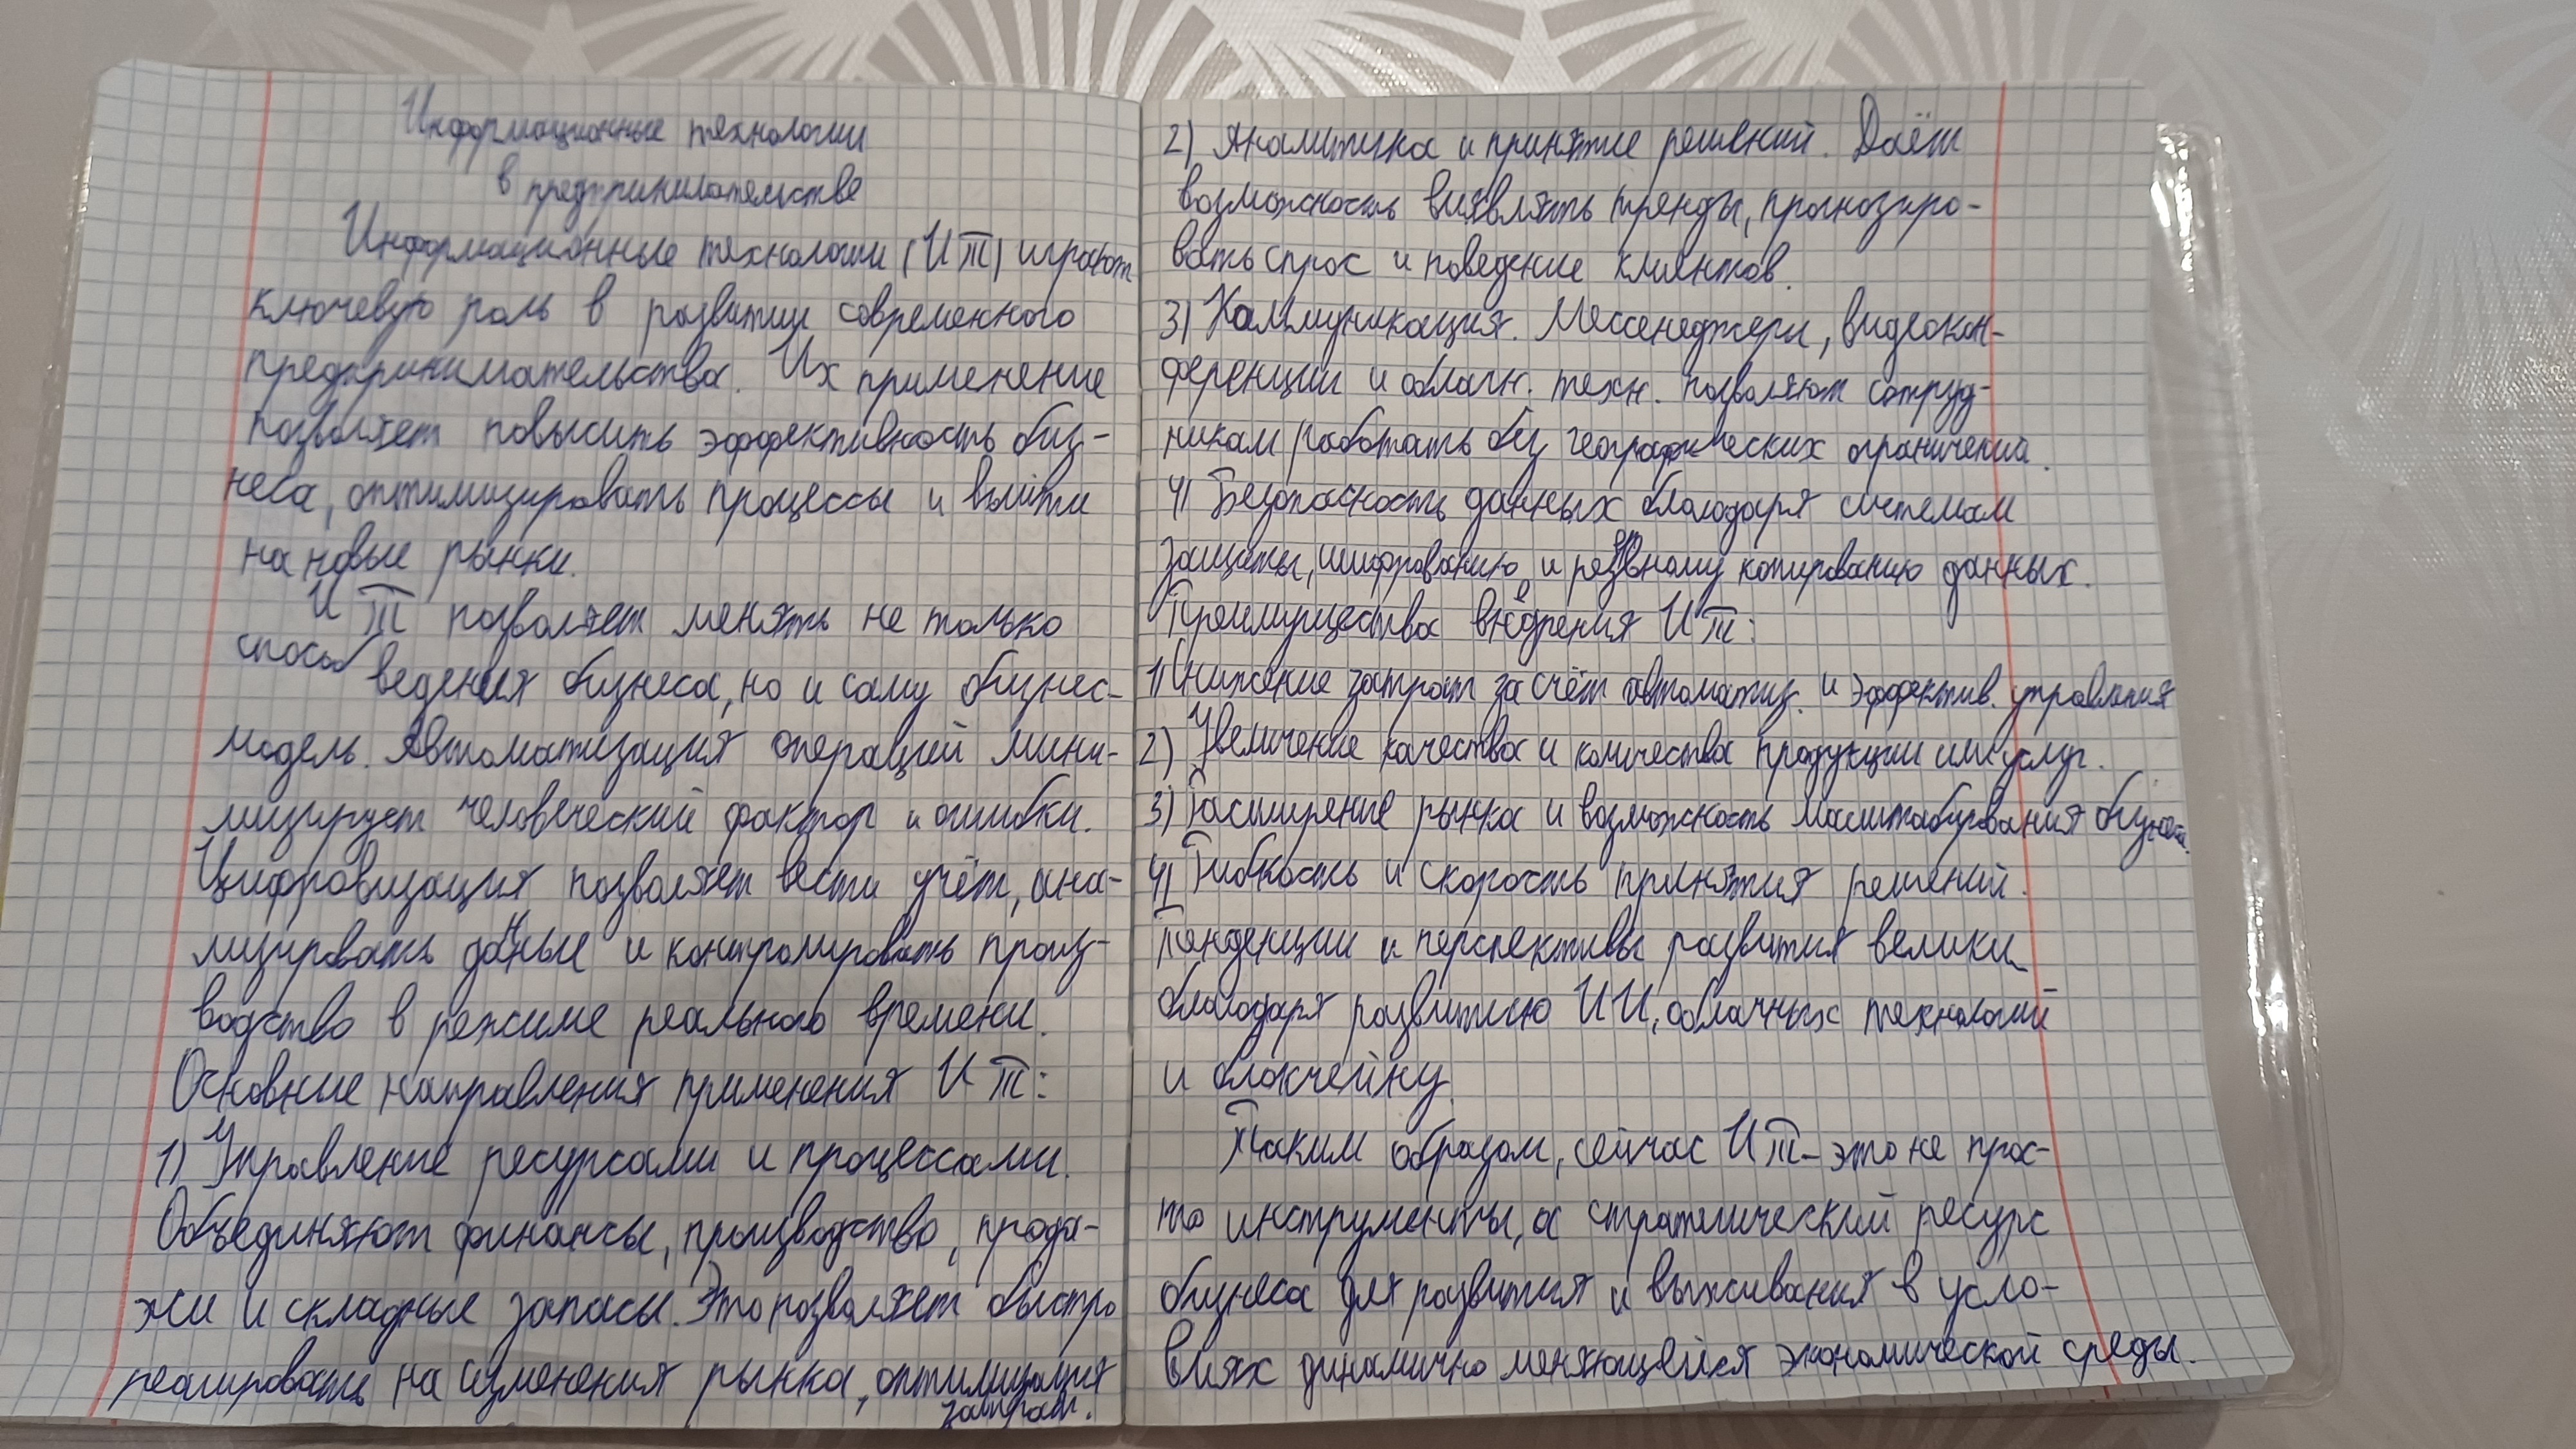 Информационные технологии
в предпринимательстве
Информационные технологии (ИТ) играют
ключевую роль в развитии современного
предпринимательства. Их применение
позволяет повысить эффективность биз-
неса, оптимизировать процессы и выйти
на новые рынки.
ИТ позволяет менять не только
способ ведения бизнеса, но и саму бизнес-
модель. Автоматизация операций мини-
мизирует человеческий фактор и ошибки.
Цифровизация позволяет вести учёт, ана-
лизировать данные и контролировать произ-
водство в режиме реального времени.
Основные направления применения ИТ:
1) Управление ресурсами и процессами.
Объединяют финансы, производство, прода-
жи и складные запасы. Это позволяет быстро
реагировать на изменения рынка, оптимизация
затрат.
2) Аналитика и принятие решений. Даёт
возможность выявлять тренды, прогнозиро-
вать спрос и поведение клиентов.
3) Коммуникация. Мессенеджеры, видеокон-
ференции и облачн. техн. позволяют сотруд-
никам работать без географических ограничений.
4) Безопасность данных благодаря системам
защиты, шифрованию, и резервному копированию данных.
Преимущества внедрения ИТ:
1) Снижение затрат за счёт автоматиз. и эффектив. управления
2) Увеличение качества и количества продукции или услуг.
3) Расширение рынка и возможность масштабирования бизнеса.
4) Гибкость и скорость принятия решений.
Тенденции и перспективы развития велики
благодаря развитию ИИ, облачных технологий
и блокчейну.
Таким образом, сейчас ИТ - это не прос-
то инструменты, а стратегический ресурс
бизнеса для развития и выживания в усло-
виях динамично меняющейся экономической среды.